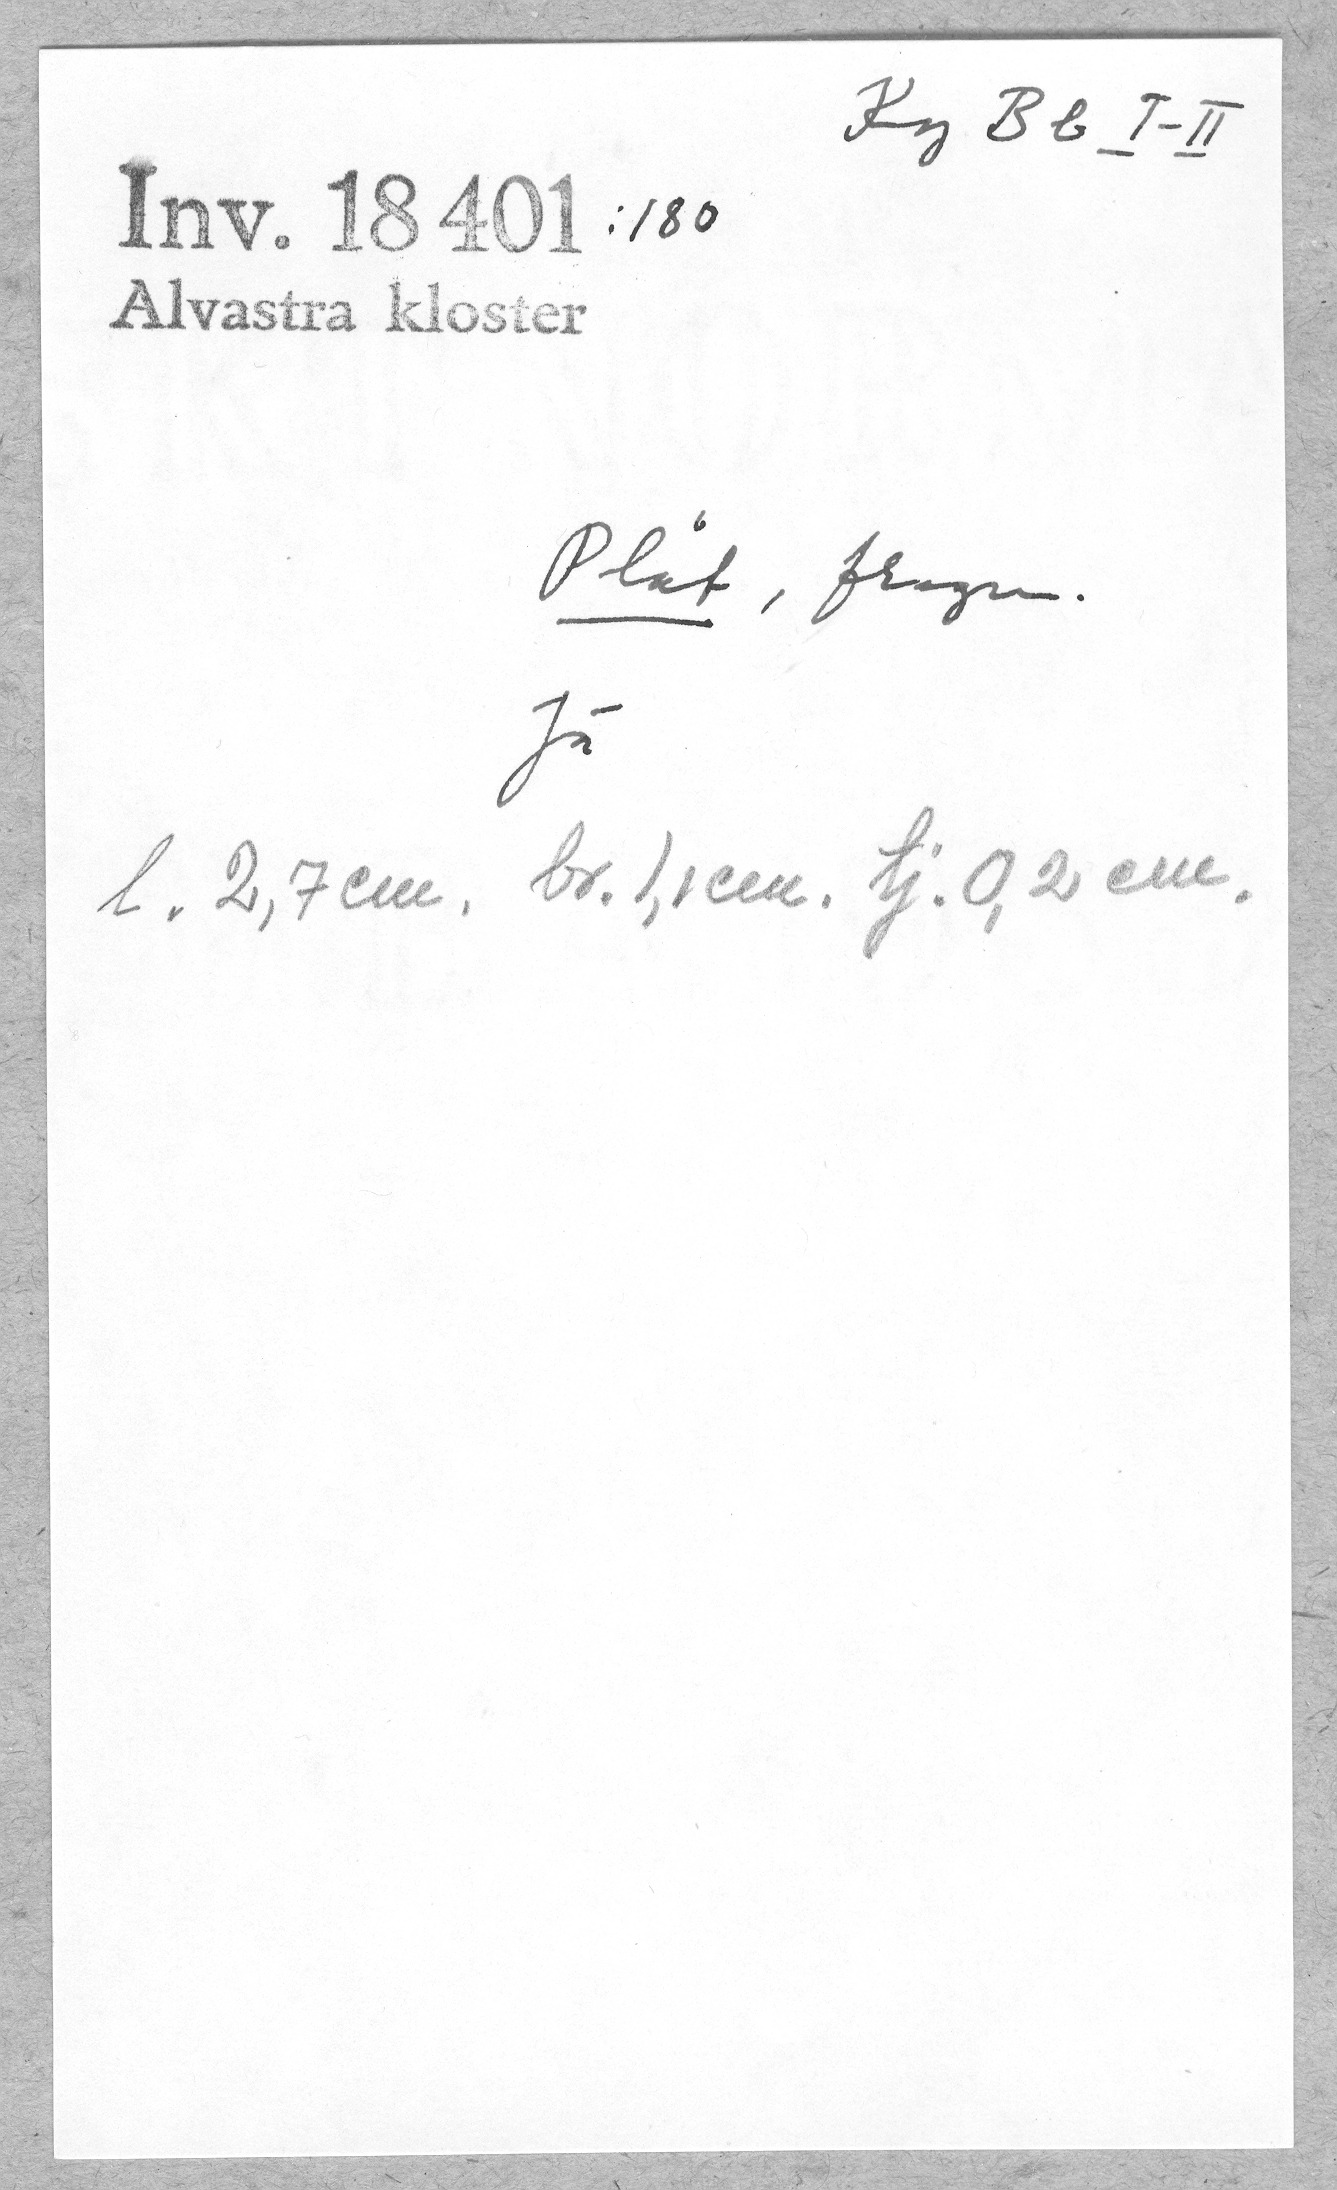 Ky Bb I-II
Inv. 18 401 :180
Alvastra kloster
Plåt, fragm.
Jä
l. 2,7 cm. br. 1,1 cm. tj. 0,2 cm.